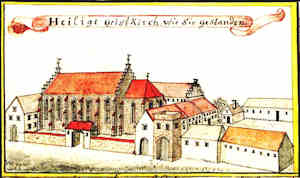 Heiligt geist Kirch wie sie gestanden